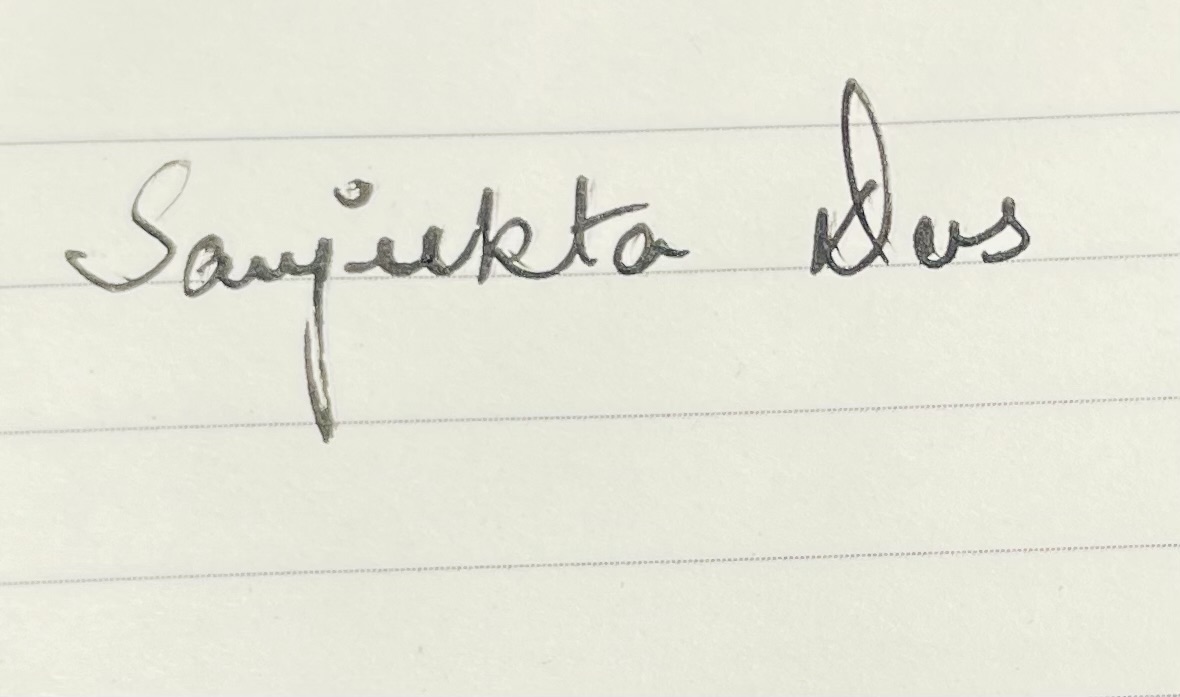 Sanjukta Das